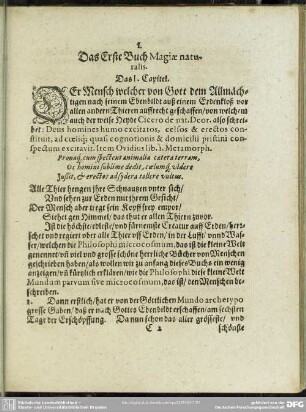 I.
Das Erste Buch Magiæ natu-
ralis.
Das I. Capitel.
DEr Mensch welcher von Gott dem Allmäch-
tigen nach seinem Ebenbildt auß einem Erdenkloß vor
allen andern Thieren auffrecht geschaffen / von welchem
auch der weise Heyde Cicero de nat. Deor. also schrei-
bet: Deus homines humo excitatos, celsos & erectos con-
stituit, ad cœlisq; quasi cognationis & domicilii pristini con-
spectum excitavit. Item Ovidius lib. 1. Metamorph.
Pronaq; cum spectent animalia cætera terram,
Os homini sublime dedit, cœlumq; videre
Jussit, & erectos ad sydera tollere vultus.
Alle Thier hengen ihre Schnautzen unter sich /
Und sehen zur Erden mit ihrem Gesicht /
Der Mensch aber tregt sein Kopff hoch empor /
Siehet gen Himmel / das thut er allen Thiern zuvor.
Ist die höchste edleste / und fürnemste Creatur auff Erden /
schet und regiert uber alle Thier auff Erden / in der Lufft / und
ser / welchen die Philosophi microcosmum, das ist die kleine Welt
genennet / und viel und grosse schöne herrliche Bücher von Menschen
geschrieben haben / als wollen wir zu anfang dieses Buchs ein wenig
anzeigen / und kürtzlich erklären / wie die Philosophi diese kleine Welt
Mundum parvum sive microcosmum, das ist / den Menschen be-
schreiben.
1. Dann erstlich / hat er von der Göttlichen Mundo archetypo
grosse Gaben / daß er nach Gottes Ebenbildt erschaffen / am sechsten
Tage der Erschöpffung. Da nun schon das aller grösseste / und
C 2 schönste